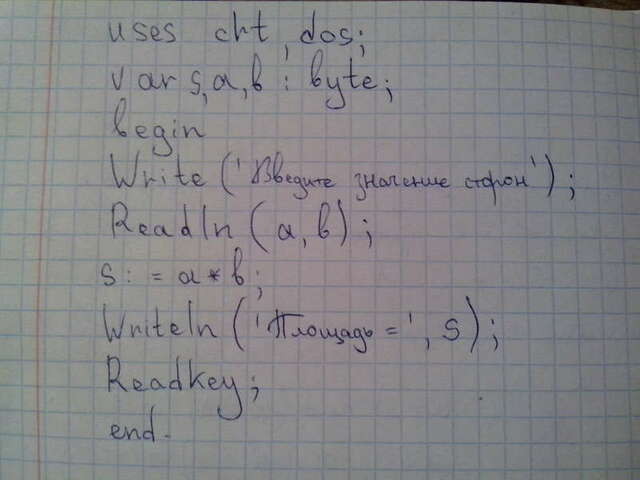 uses crt, dos;
var s,a,b : byte;
begin
Write ('Введите значение сторон');
Readln (a,b);
s:=a*b;
Writeln ('Площадь=', s);
Readkey;
end.